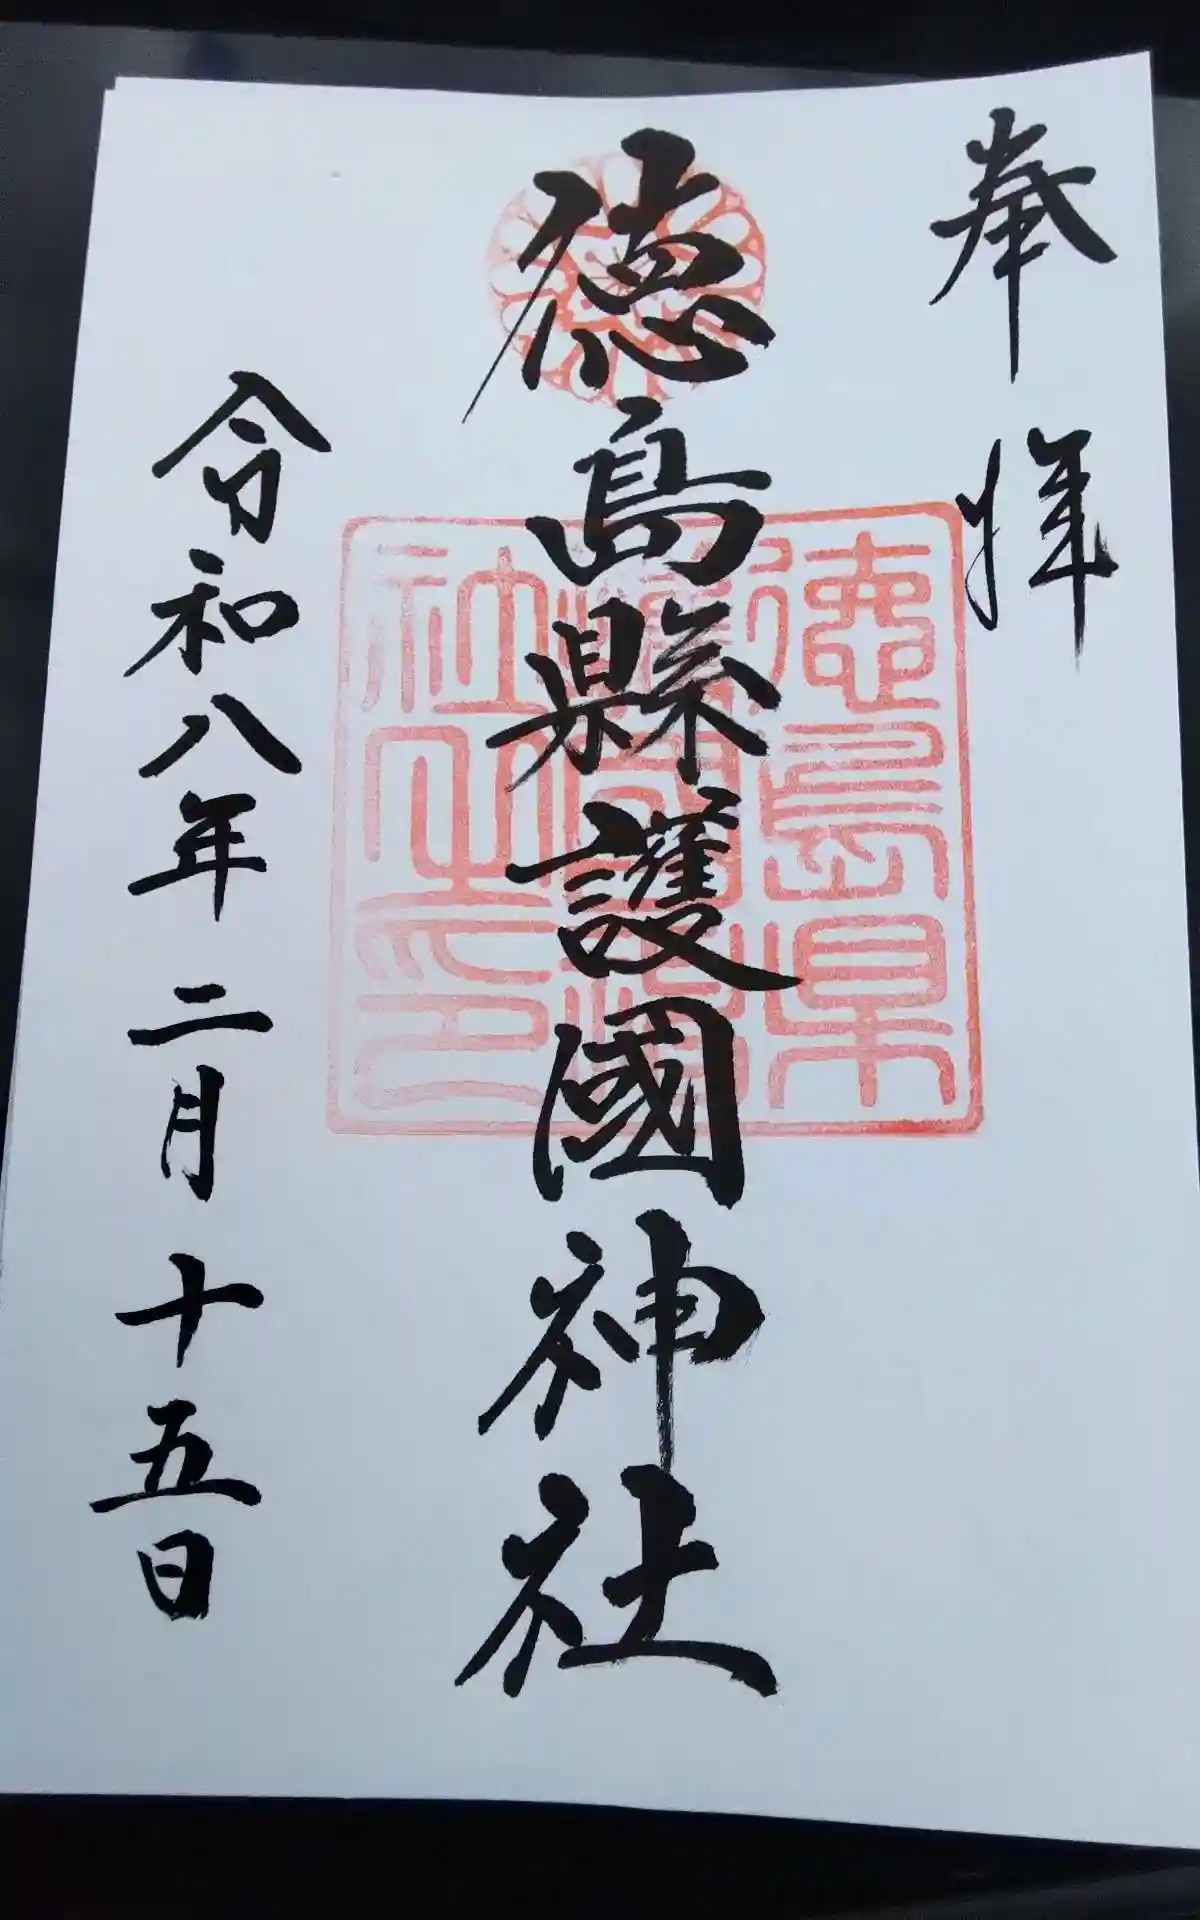 奉拝
徳島縣護國神社
徳島県護國神社之印
令和八年二月十五日